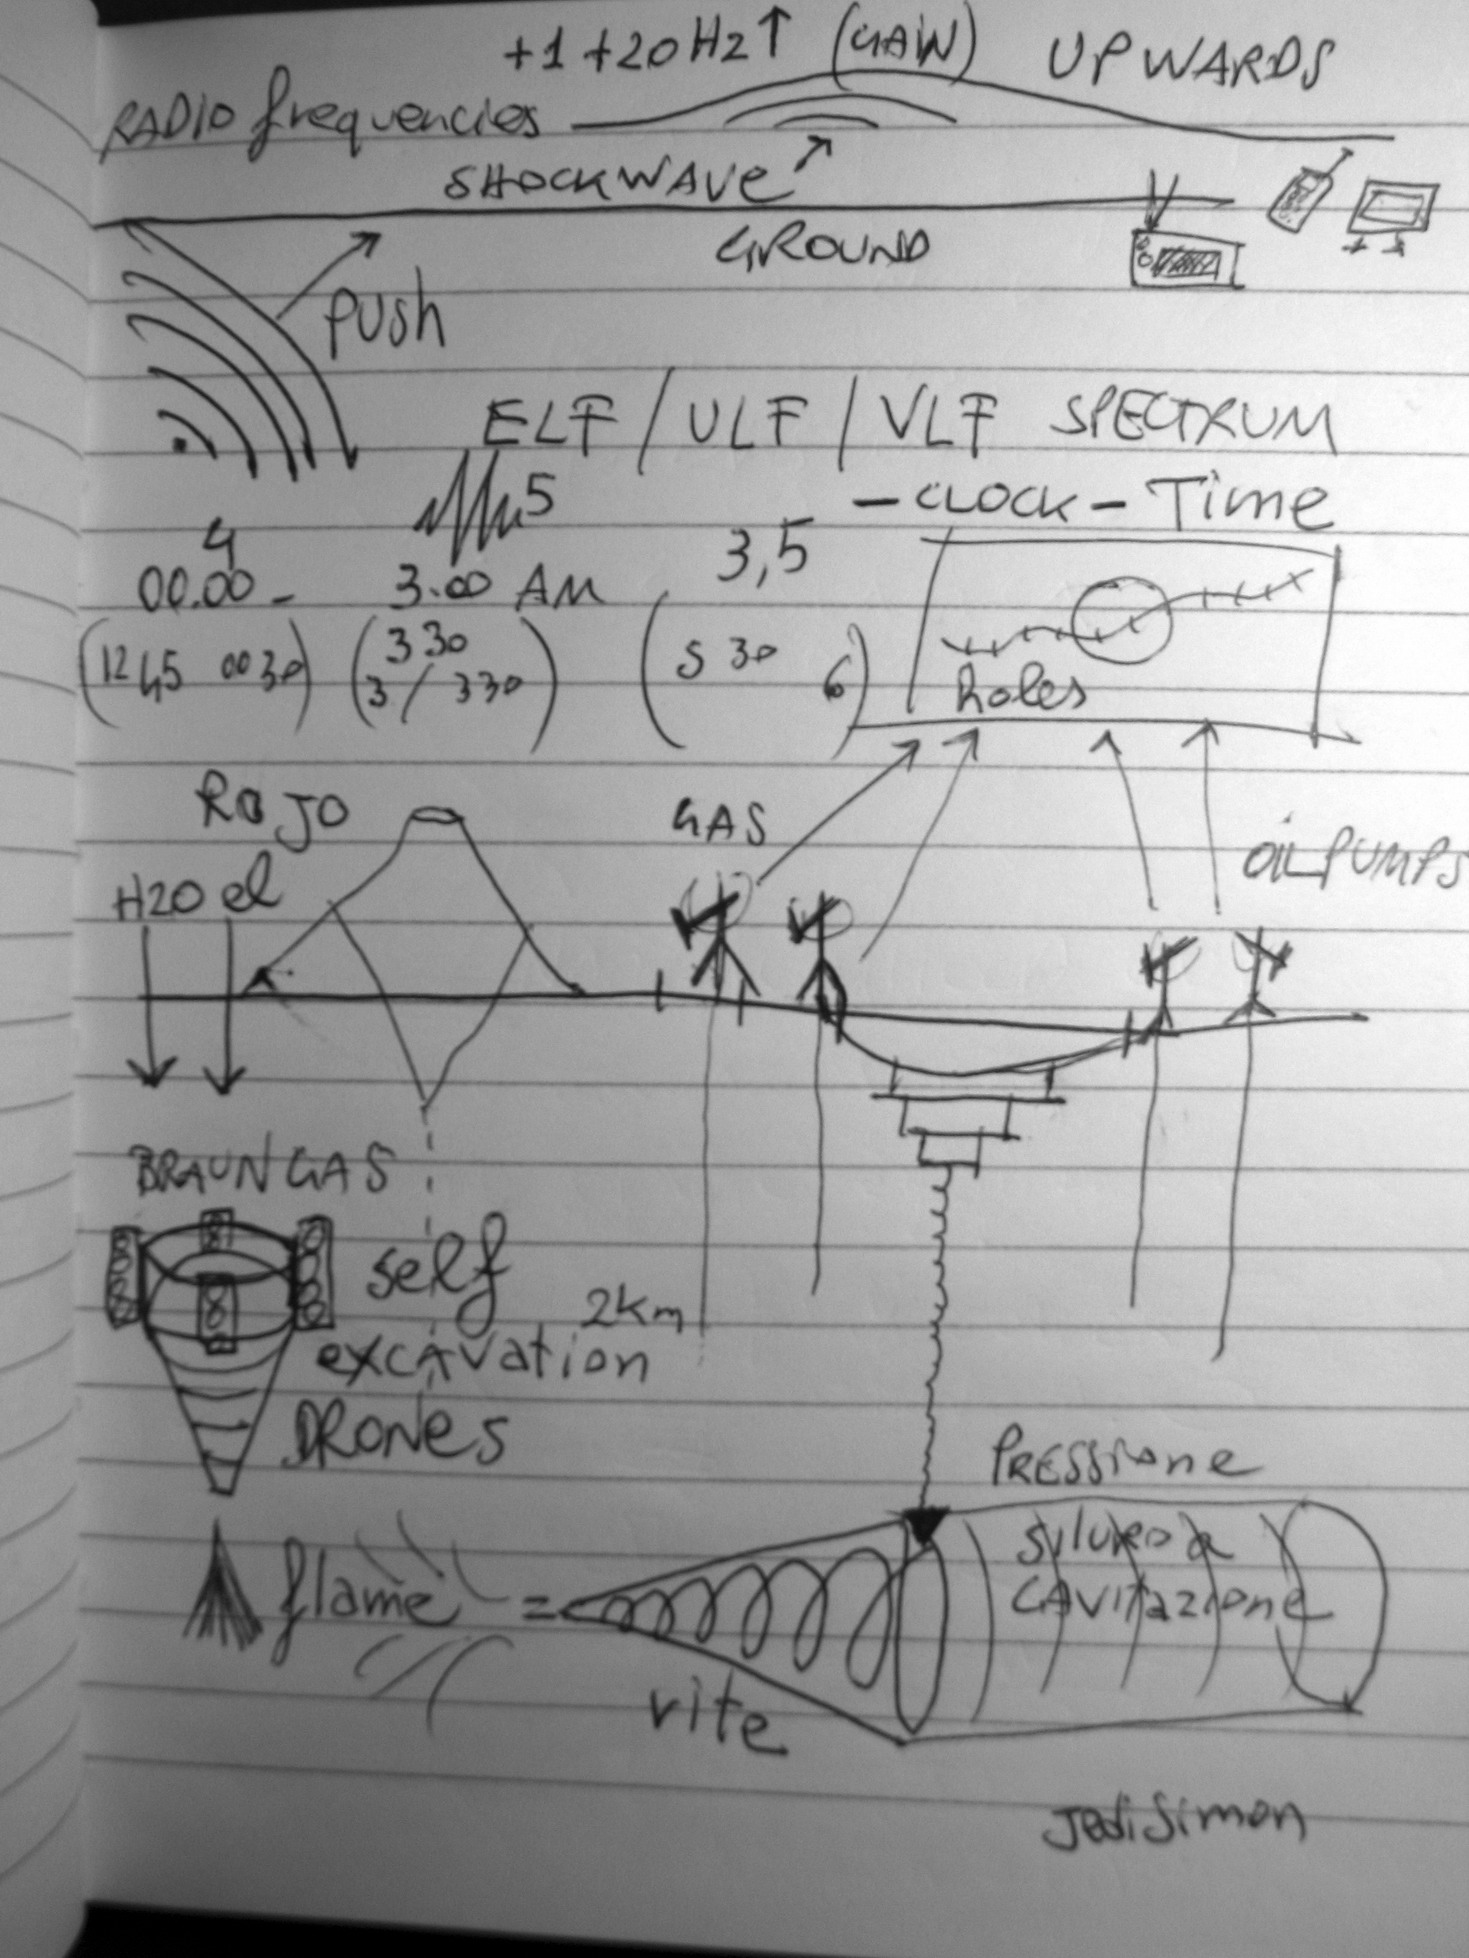 +1 +20 HZ↑ (GAIN) UPWARDS
RADIO frequencies
SHOCKWAVE
GROUND
PUSH
ELF / ULF / VLF SPECTRUM
5 - CLOCK - Time
4 3,5
00.00 - 3.00 AM
(12 45 00 30) (3 30 3 / 330) (5 30 6)
holes
ROJO GAS
OIL PUMPS
H2O el
BRAUN GAS
self
2Km
excavation
DRONES
PRESSione
flame =
CAVitazione
vite
JediSimon